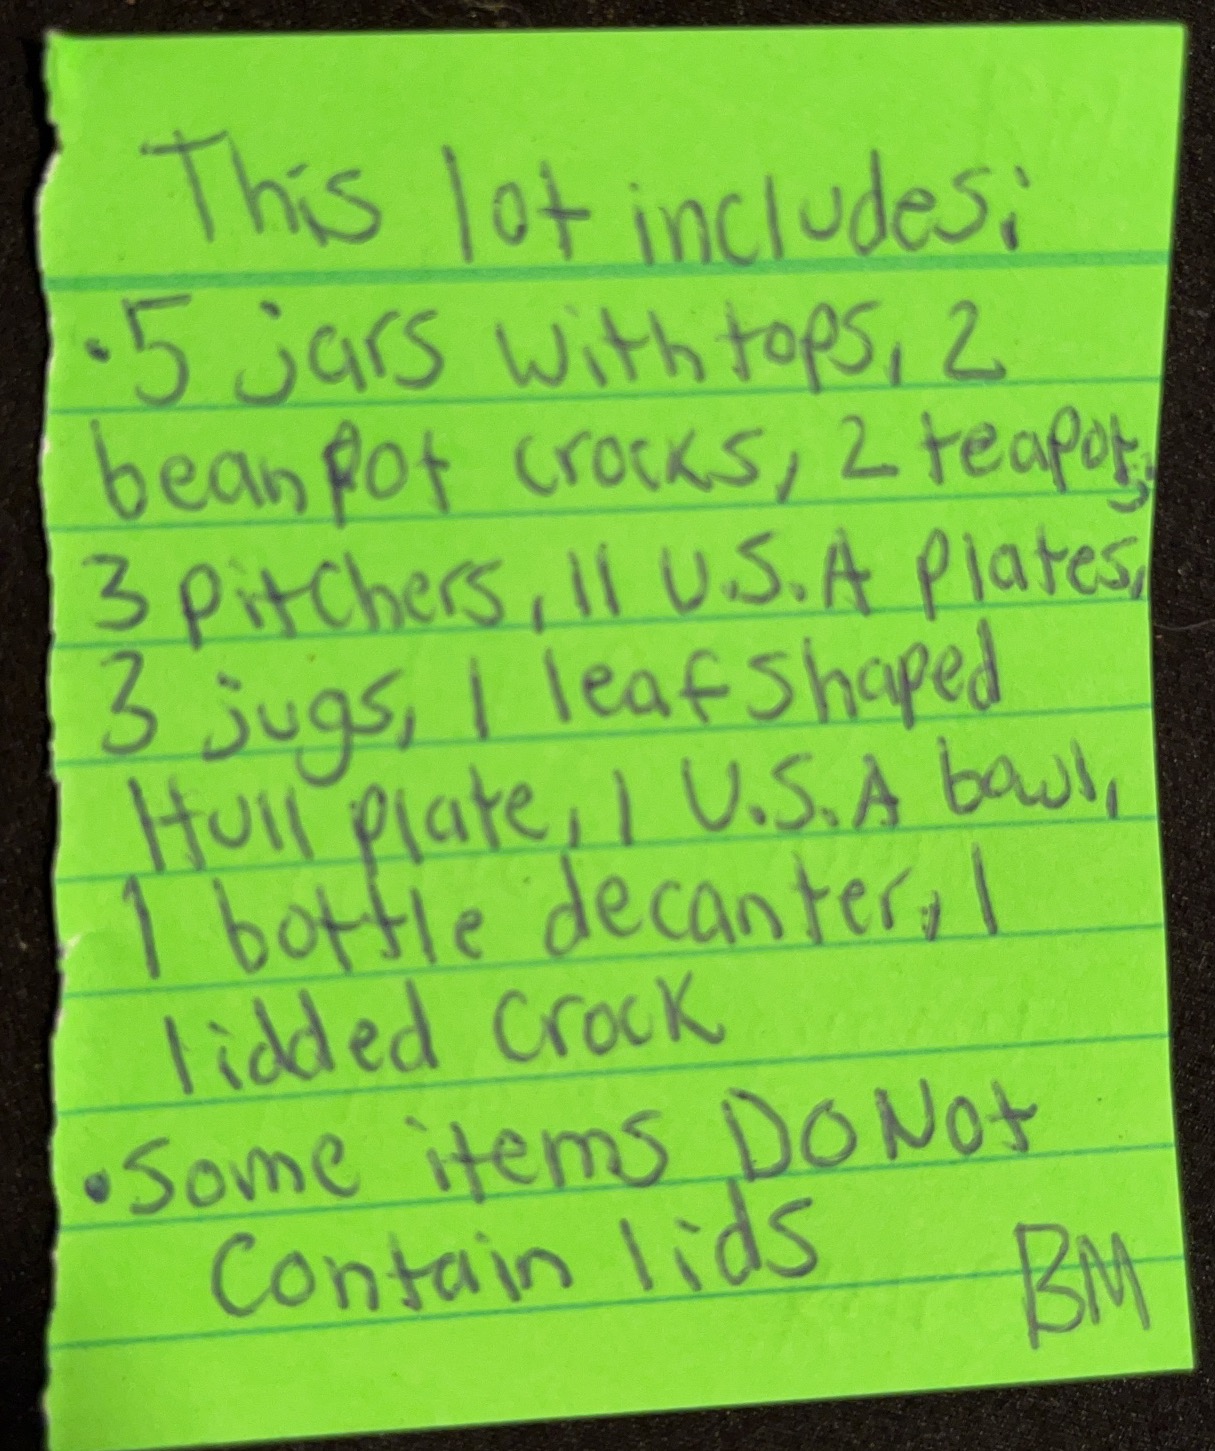 This lot includes;
• 5 jars with tops, 2
bean pot crocks, 2 teapots,
3 pitchers, 11 U.S.A plates,
3 jugs, 1 leaf shaped
Hull plate, 1 U.S.A bowl,
1 bottle decanter, 1
lidded crock
• Some items DO Not
Contain lids
BM